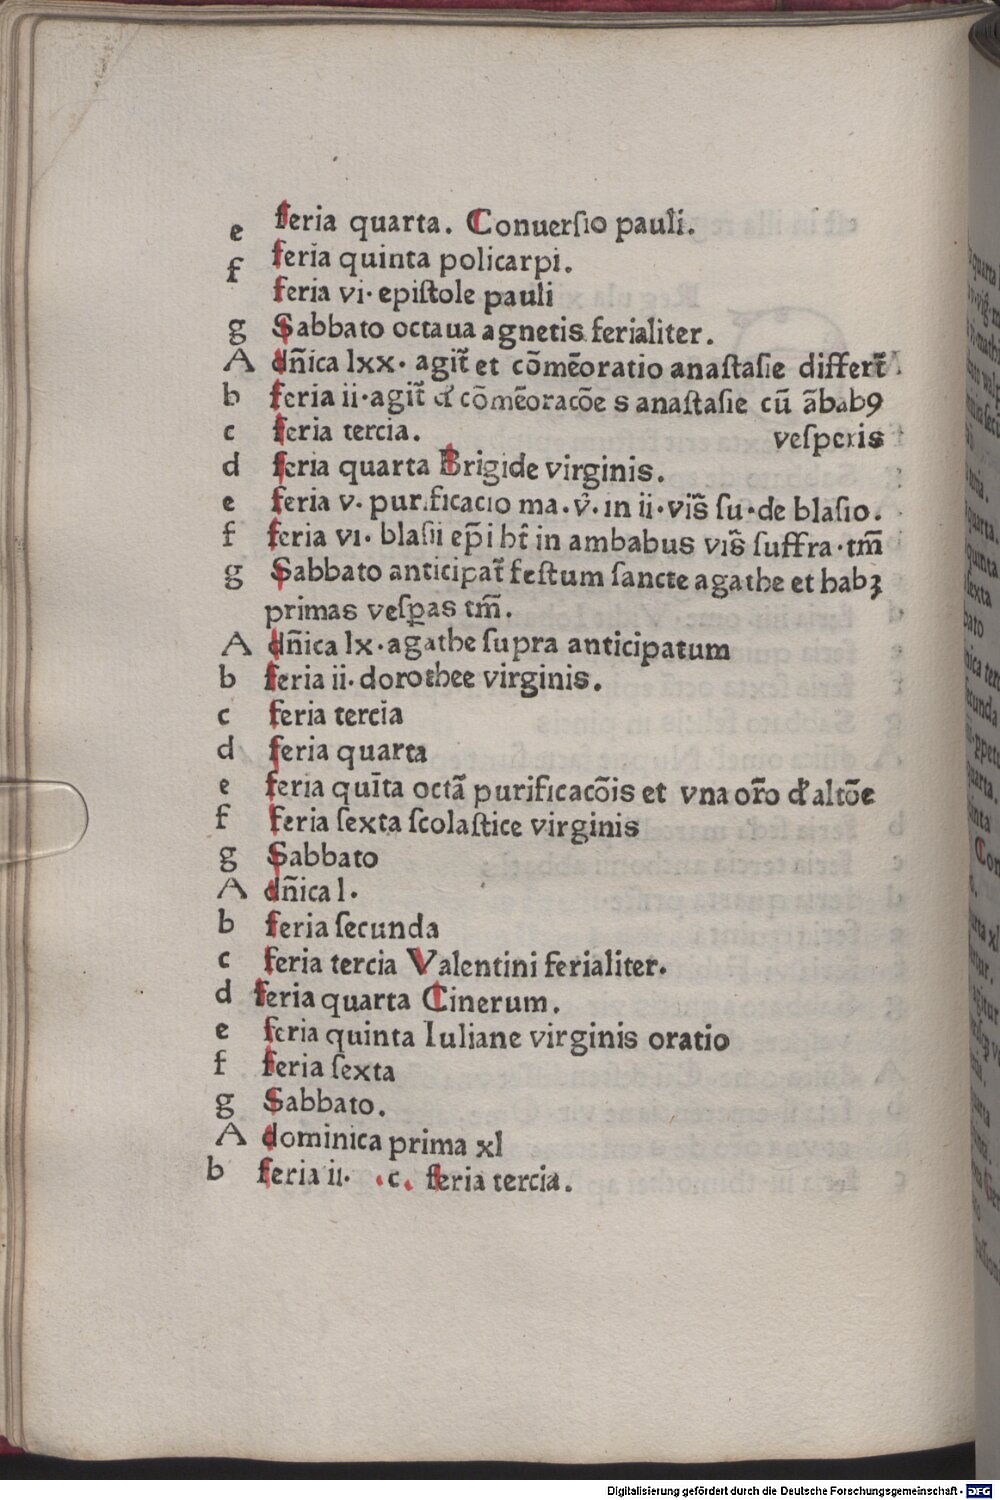 e feria quarta. Conuerſio pauli.
f feria quinta policarpi.
feria vi· epiſtole pauli
g Sabbato octaua agnetis ferialiter.
A dn̄ica lxx· agit᷑ et cōmēoratio anaſtaſie differt᷑.
b feria ii·agit᷑ cōmēoracōe s anaſtaſie cū ābabꝰ
c feria tercia. veſperis
d feria quarta Brigide virginis.
e feria v· purificacio ma·v̄· in ii·viſ̄ ſu·de blaſio.
f feria vi· blaſii ep̄i ht̄ in ambabus viſ̄ ſuffra·tm̄
g Sabbato anticipat᷑ feſtum ſancte agathe et habꝫ
primas veſꝑas tm̄.
A dn̄ica lx·agathe ſupra anticipatum
b feria ii· dorothee virginis.
c feria tercia
d feria quarta
e feria quīta octā purificacōis et vna or̄o altōe
f feria ſexta ſcolaſtice virginis
g Sabbato
A dn̄ica l·
b feria ſecunda
c feria tercia Valentini ferialiter.
d feria quarta Cinerum.
e feria quinta Iuliane virginis oratio
f feria ſexta
g Sabbato.
A dominica prima xl
b feria ii· .c. feria tercia.
Digitalisierung gefördert durch die Deutsche Forschungsgemeinschaft - DFG